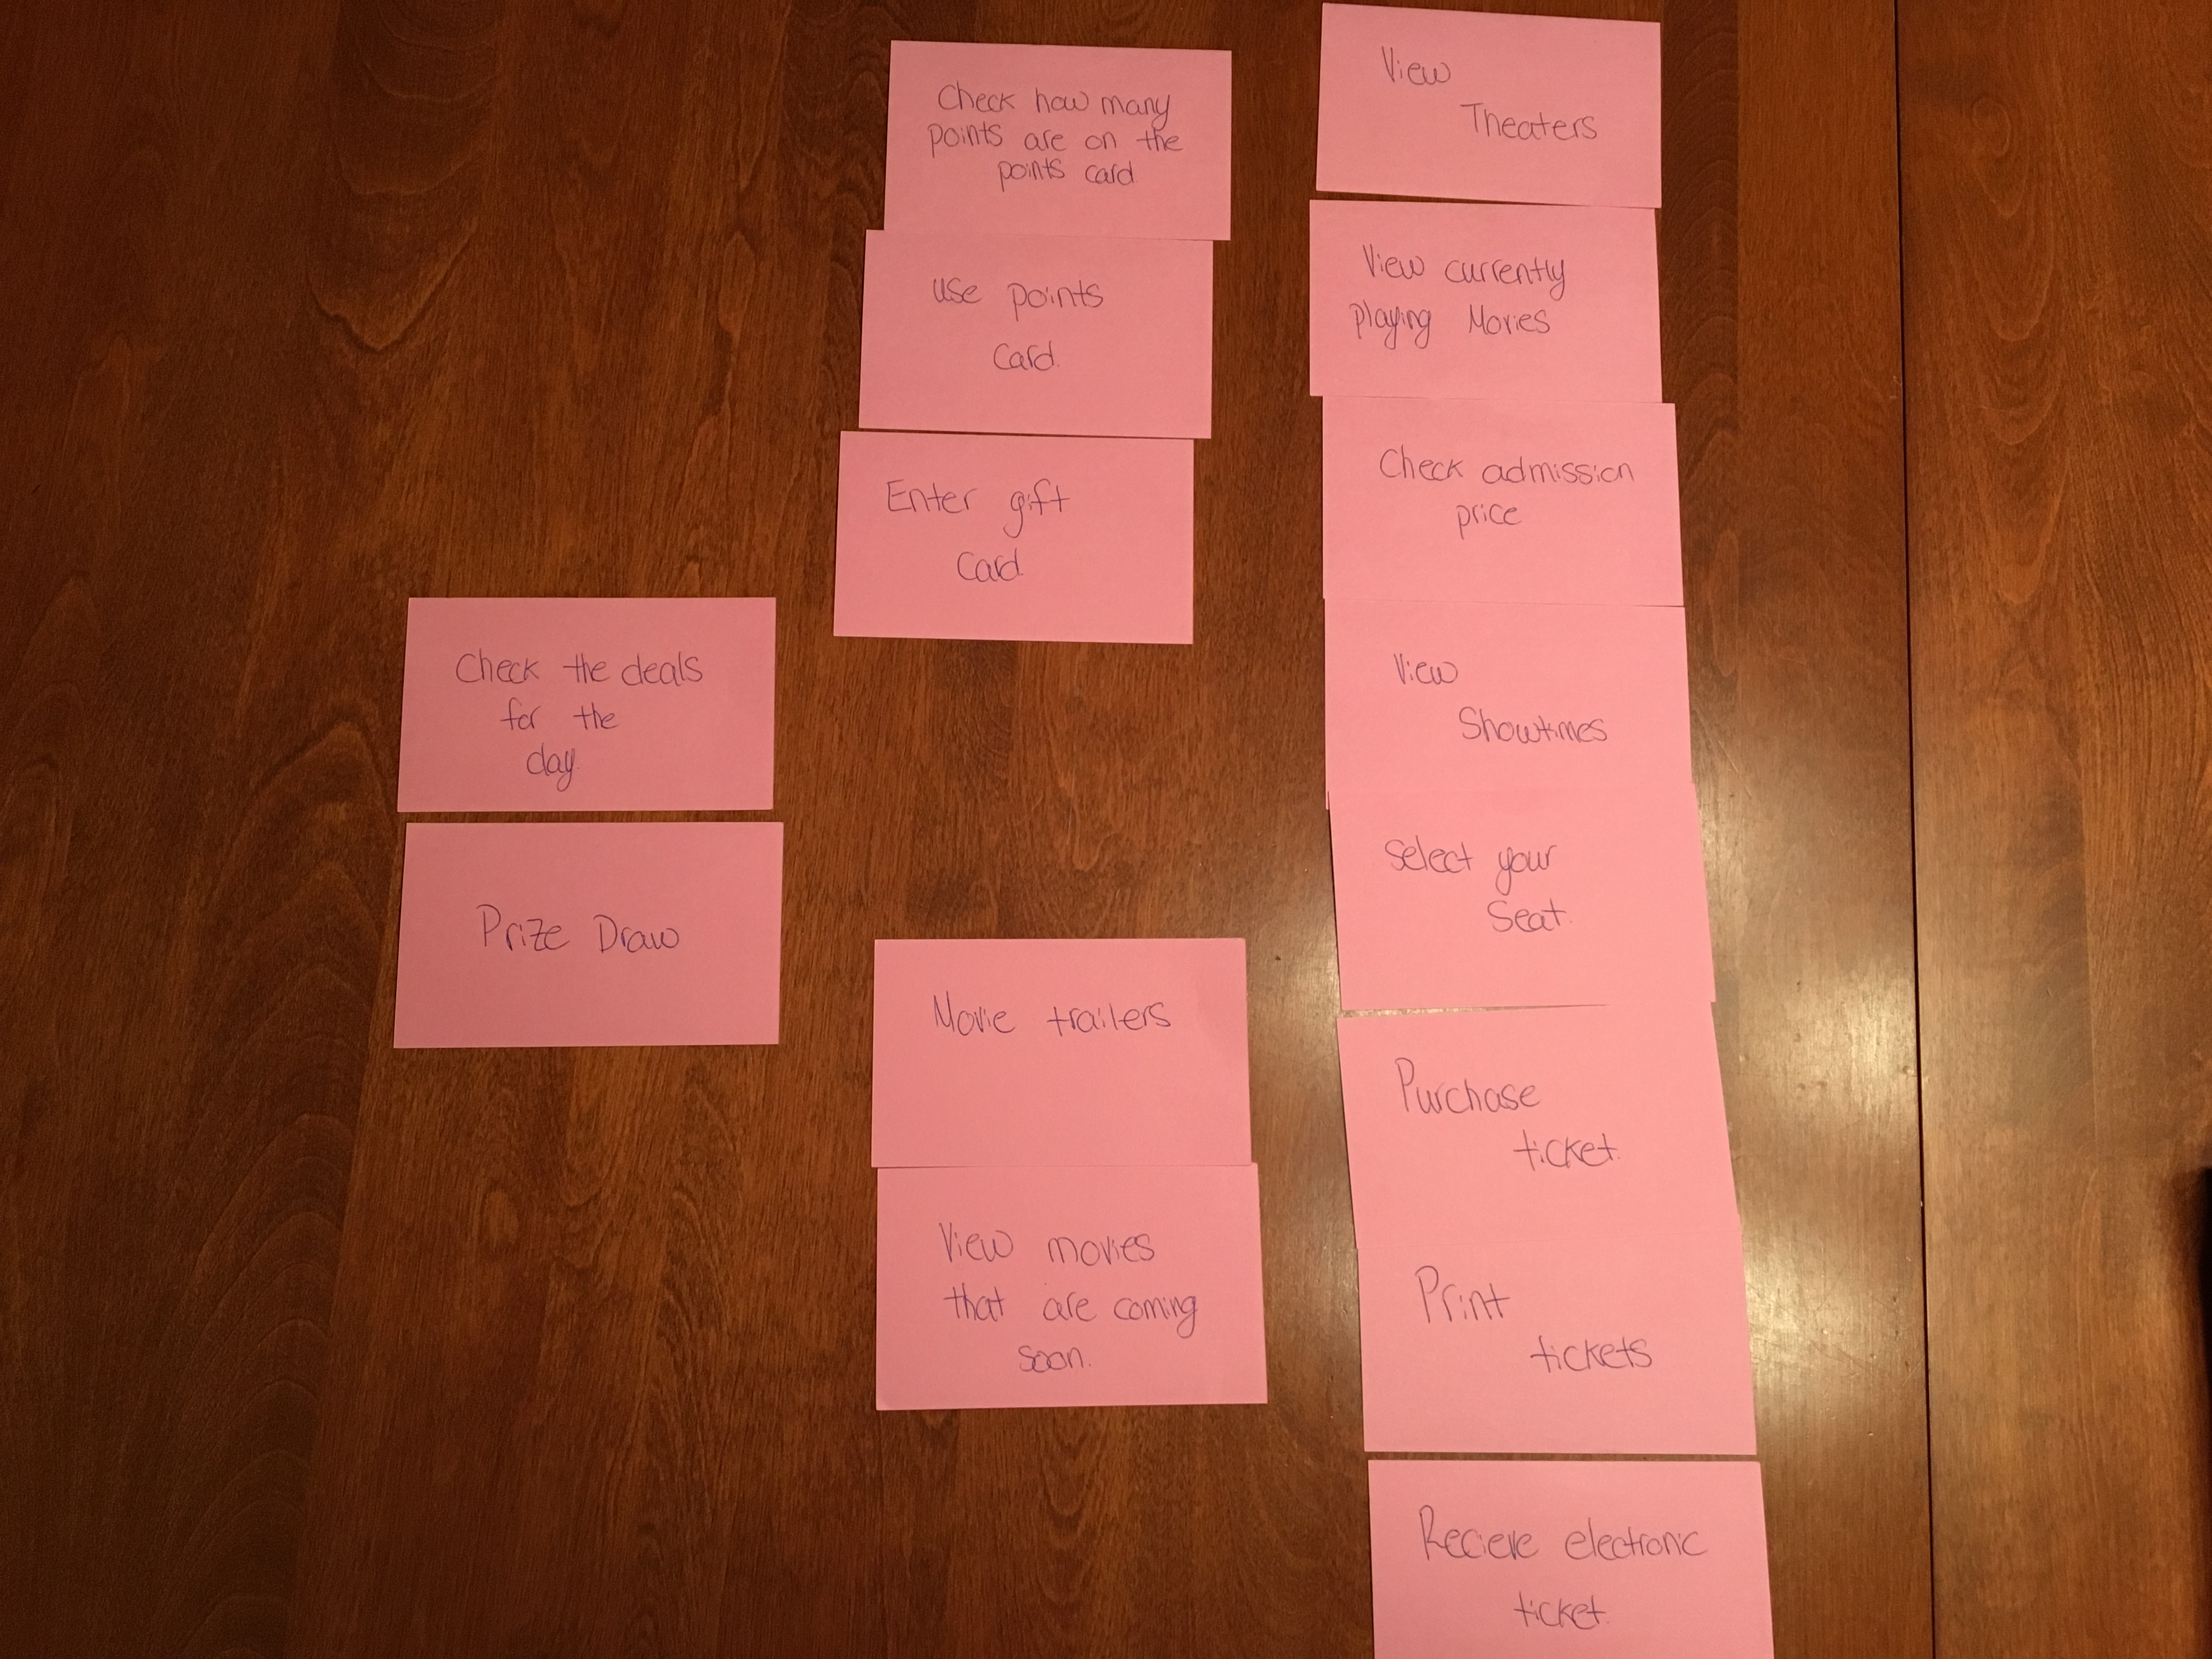 Check the deals
for the
day
Prize Draw
Check how many
points are on the
points card
use points
Card.
Enter gift
Card
Movie trailers
View movies
that are coming
soon.
View
Theaters
View currently
playing Movies
Check admission
price
View
Showtimes
Select your
Seat.
Purchase
ticket.
Print
tickets
Recieve electronic
ticket.